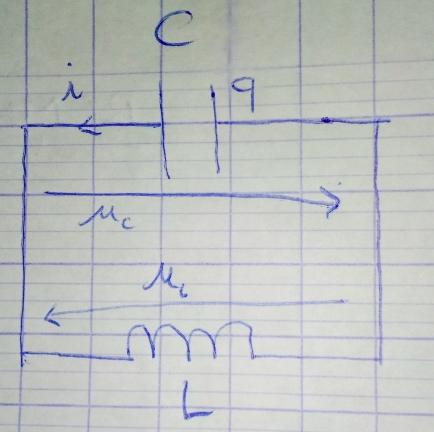 C
i
q
u_c
u_L
L